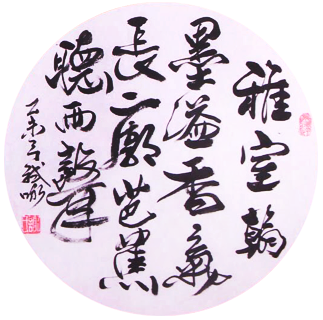 雅室翰
墨溢香氣
長廊芭蕉
聽雨敲